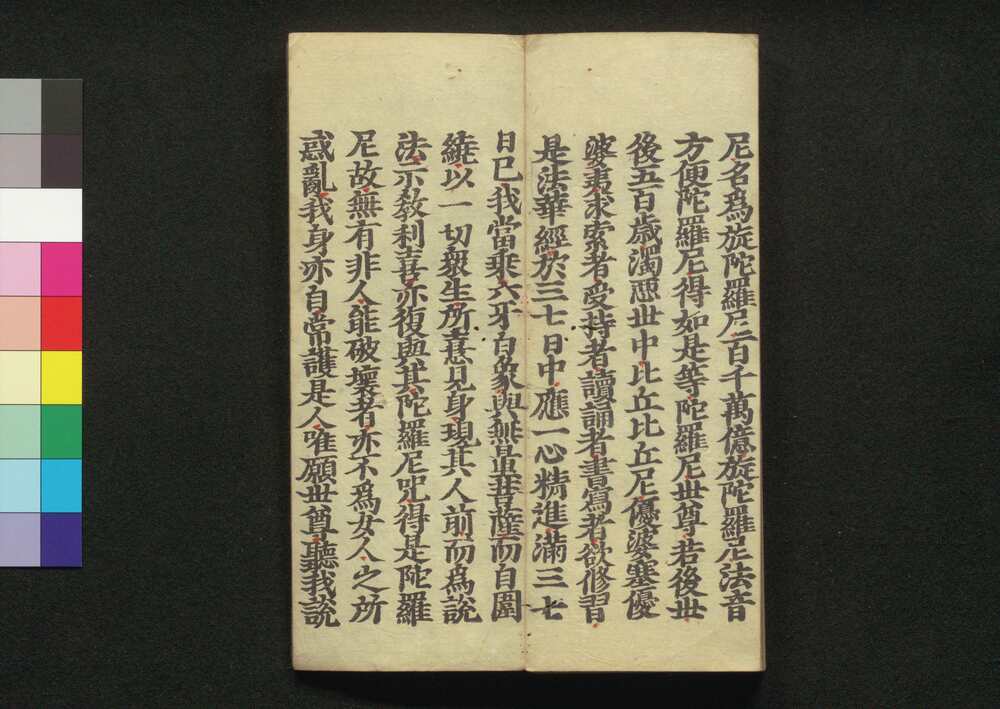 尼名爲旋陀羅尼百千萬億旋陀羅尼法音
方便陀羅尼得如是等陀羅尼世尊若後世
後五百歳濁惡世中比丘比丘尼優婆塞優
婆夷求索者受持者讀誦者書寫者欲修習
是法華經於三七日中應一心精進滿三七
日已我當乘六牙白象與無量菩薩而自圍
繞以一切衆生所憙見身現其人前而爲説
法示敎利喜亦復與其陀羅尼呪得是陀羅
尼故無有非人能破壞者亦不爲女人之所
惑亂我身亦自常護是人唯願世尊聽我説